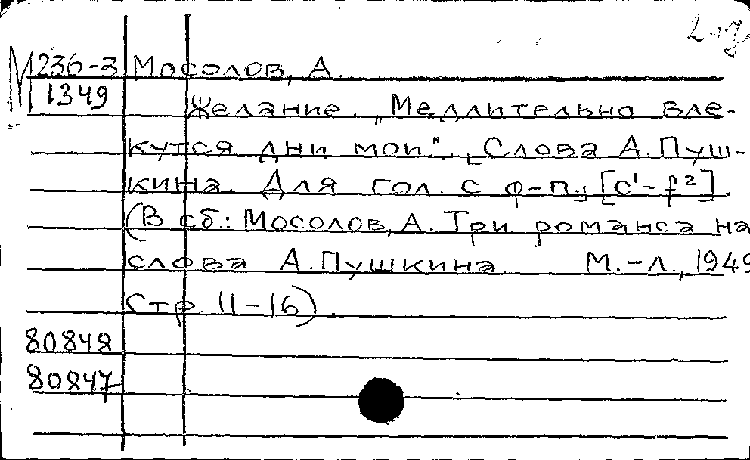 М 236-3 Мосолов, А.
1349 Желание. „Медлительно вле-
кутся дни мои". [Слова А. Пуш-
кина. Для гол. с ф-п.; [c¹-f²].
(В сб.: Мосолов, А. Три романса на
слова А. Пушкина М.-Л., 1949
Стр. 11-16).
80848
80847